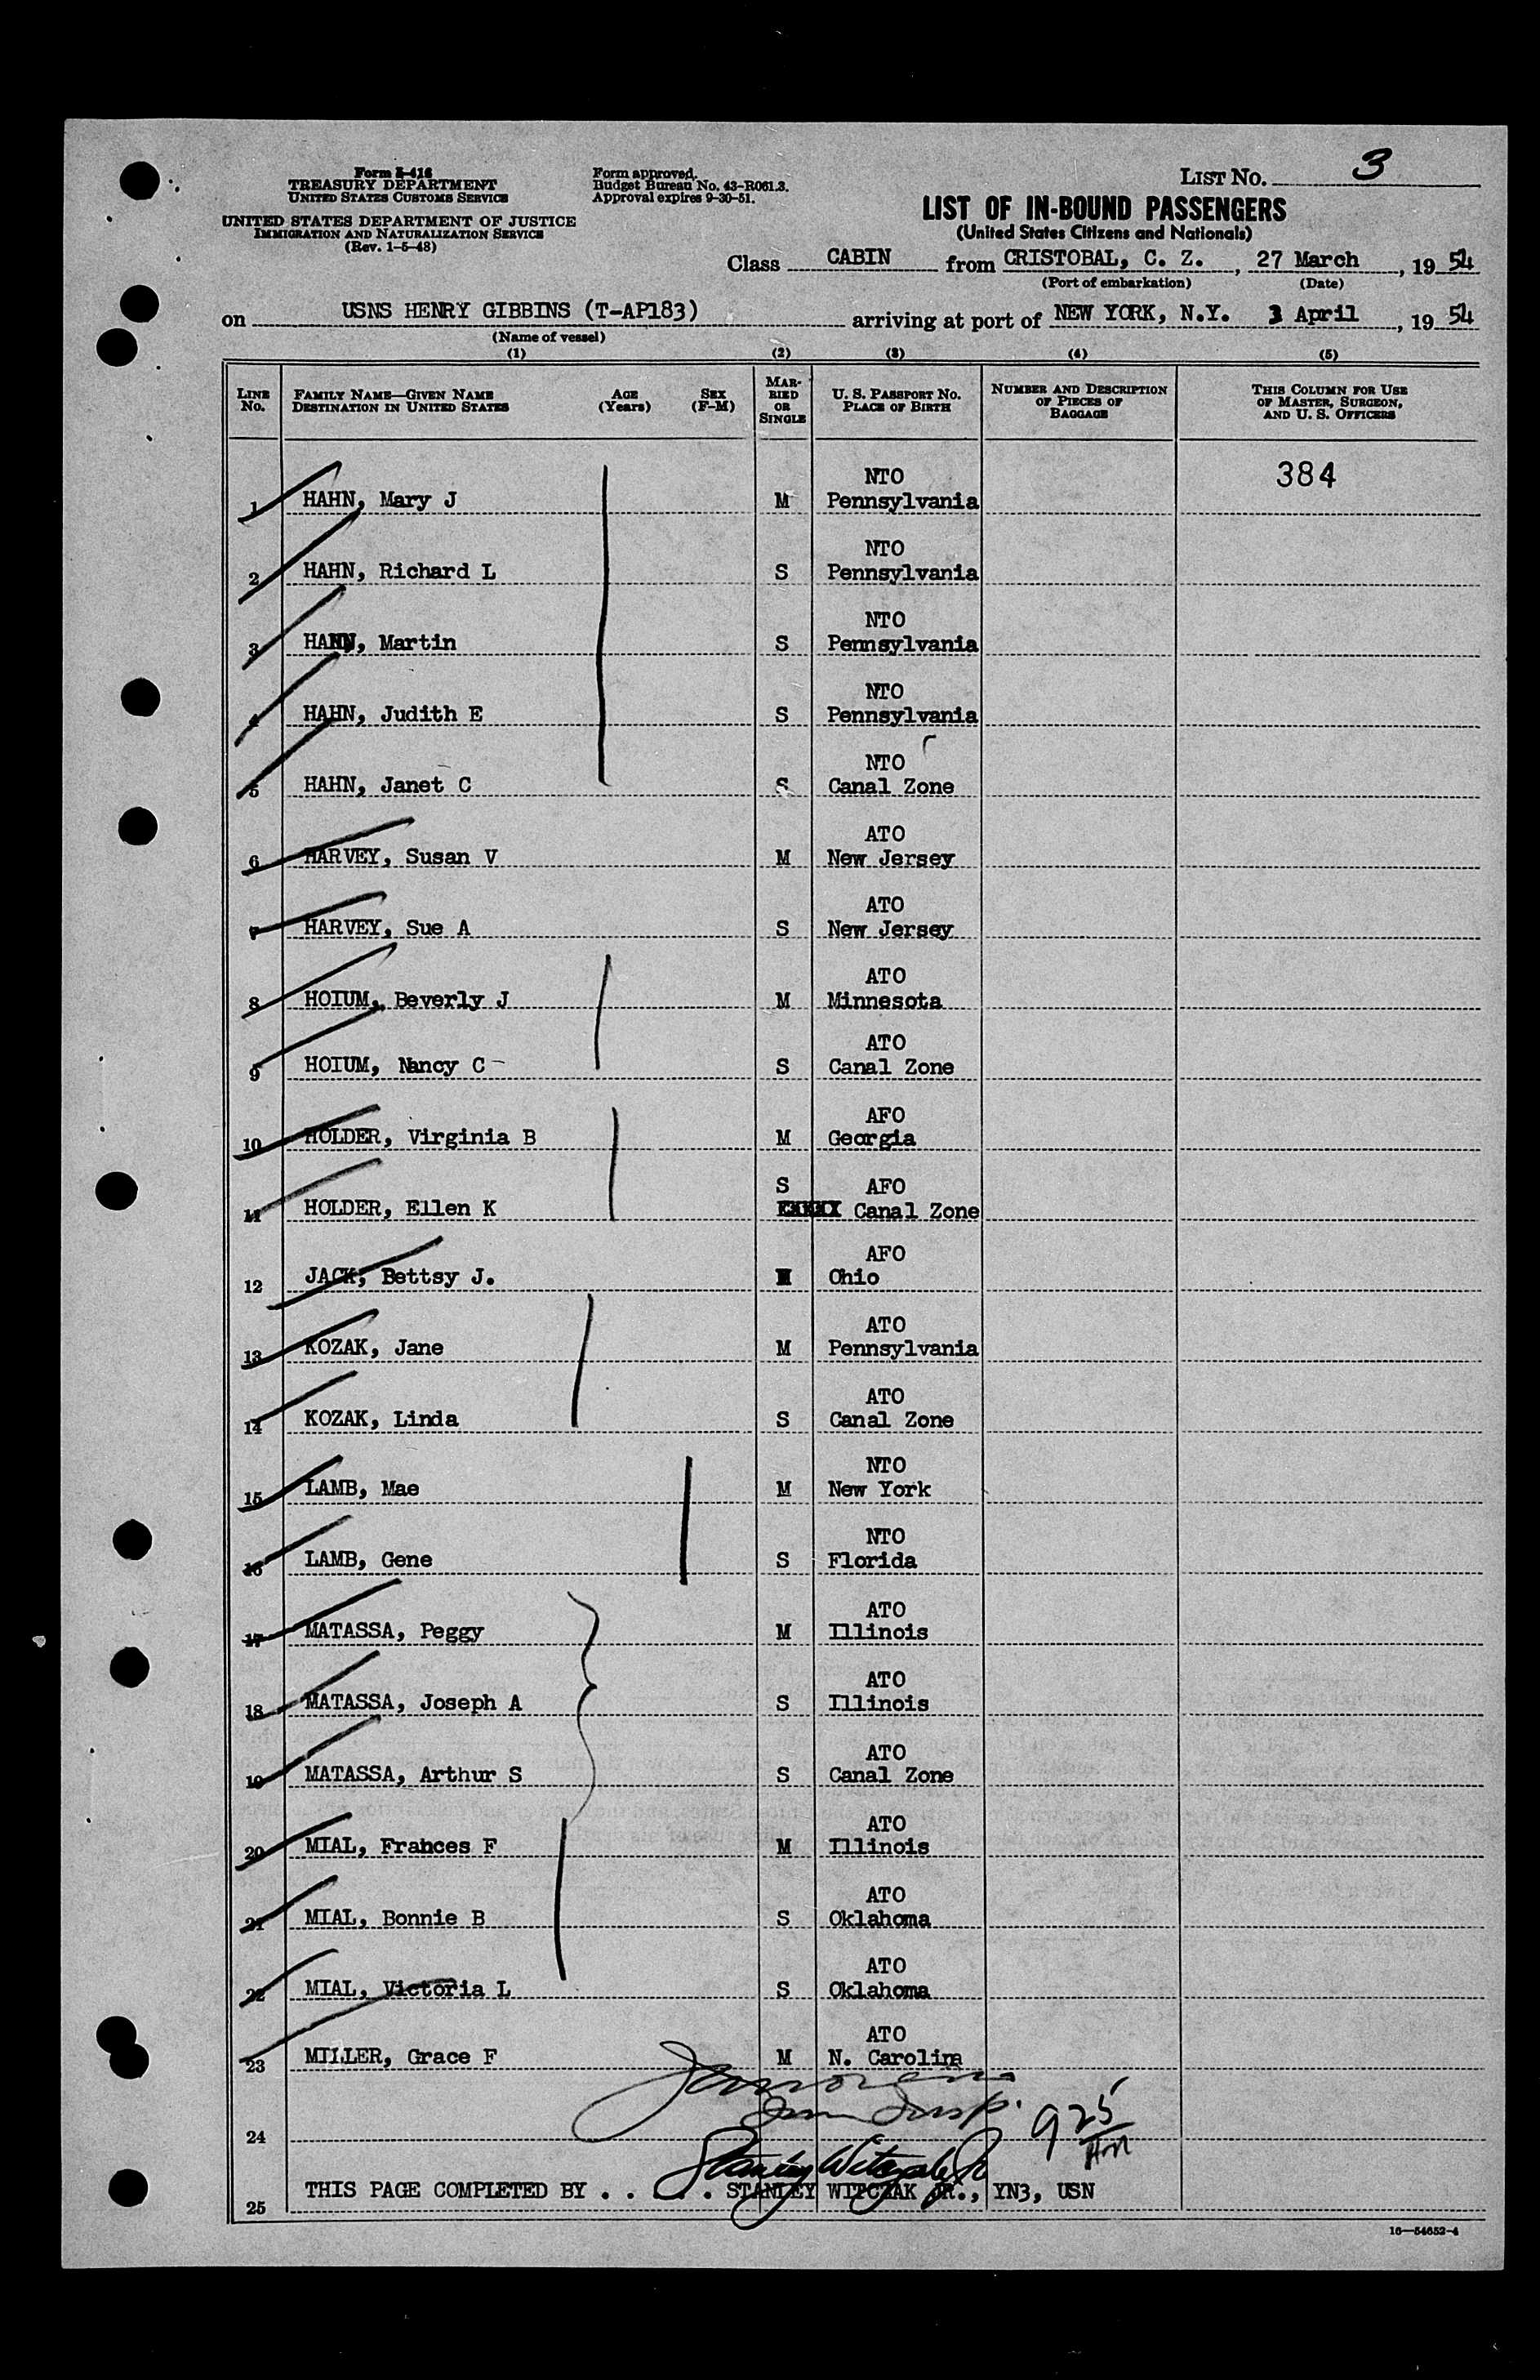 Form I-416
TREASURY DEPARTMENT
UNITED STATES CUSTOMS SERVICE
UNITED STATES DEPARTMENT OF JUSTICE
IMMIGRATION AND NATURALIZATION SERVICE
(Rev. 1-5-48)
Form approved.
Budget Bureau No. 43-R061.3.
Approval expires 9-30-51.
LIST NO. 3
LIST OF IN-BOUND PASSENGERS
(United States Citizens and Nationals)
Class CABIN from CRISTOBAL, C. Z., 27 March, 1954
(Port of embarkation) (Date)
on USNS HENRY GIBBINS (T-AP183) arriving at port of NEW YORK, N.Y. 3 April, 1954
(Name of vessel)
(1) (2) (3) (4) (5)
LINE NO. FAMILY NAME—GIVEN NAME DESTINATION IN UNITED STATES AGE (Years) SEX (F-M) MARRIED OR SINGLE U. S. PASSPORT NO. PLACE OF BIRTH NUMBER AND DESCRIPTION OF PIECES OF BAGGAGE THIS COLUMN FOR USE OF MASTER, SURGEON, AND U. S. OFFICERS
NTO 384
1 HAHN, Mary J M Pennsylvania
NTO
2 HAHN, Richard L S Pennsylvania
NTO
3 HAHN, Martin S Pennsylvania
NTO
4 HAHN, Judith E S Pennsylvania
NTO
5 HAHN, Janet C S Canal Zone
ATO
6 HARVEY, Susan V M New Jersey
ATO
7 HARVEY, Sue A S New Jersey
ATO
8 HOIUM, Beverly J M Minnesota
ATO
9 HOIUM, Nancy C S Canal Zone
AFO
10 HOLDER, Virginia B M Georgia
S AFO
11 HOLDER, Ellen K Canal Zone
AFO
12 JACK, Bettsy J. M Ohio
ATO
13 KOZAK, Jane M Pennsylvania
ATO
14 KOZAK, Linda S Canal Zone
NTO
15 LAMB, Mae M New York
NTO
16 LAMB, Gene S Florida
ATO
17 MATASSA, Peggy M Illinois
ATO
18 MATASSA, Joseph A S Illinois
ATO
19 MATASSA, Arthur S S Canal Zone
ATO
20 MIAL, Frances F M Illinois
ATO
21 MIAL, Bonnie B S Oklahoma
ATO
22 MIAL, Victoria L S Oklahoma
ATO
23 MILLER, Grace F M N. Carolina
Imm Insp.
925
24
Stanley Witczak Jr
25 THIS PAGE COMPLETED BY . . . . . STANLEY WITCZAK JR., YN3, USN
16—54652-4